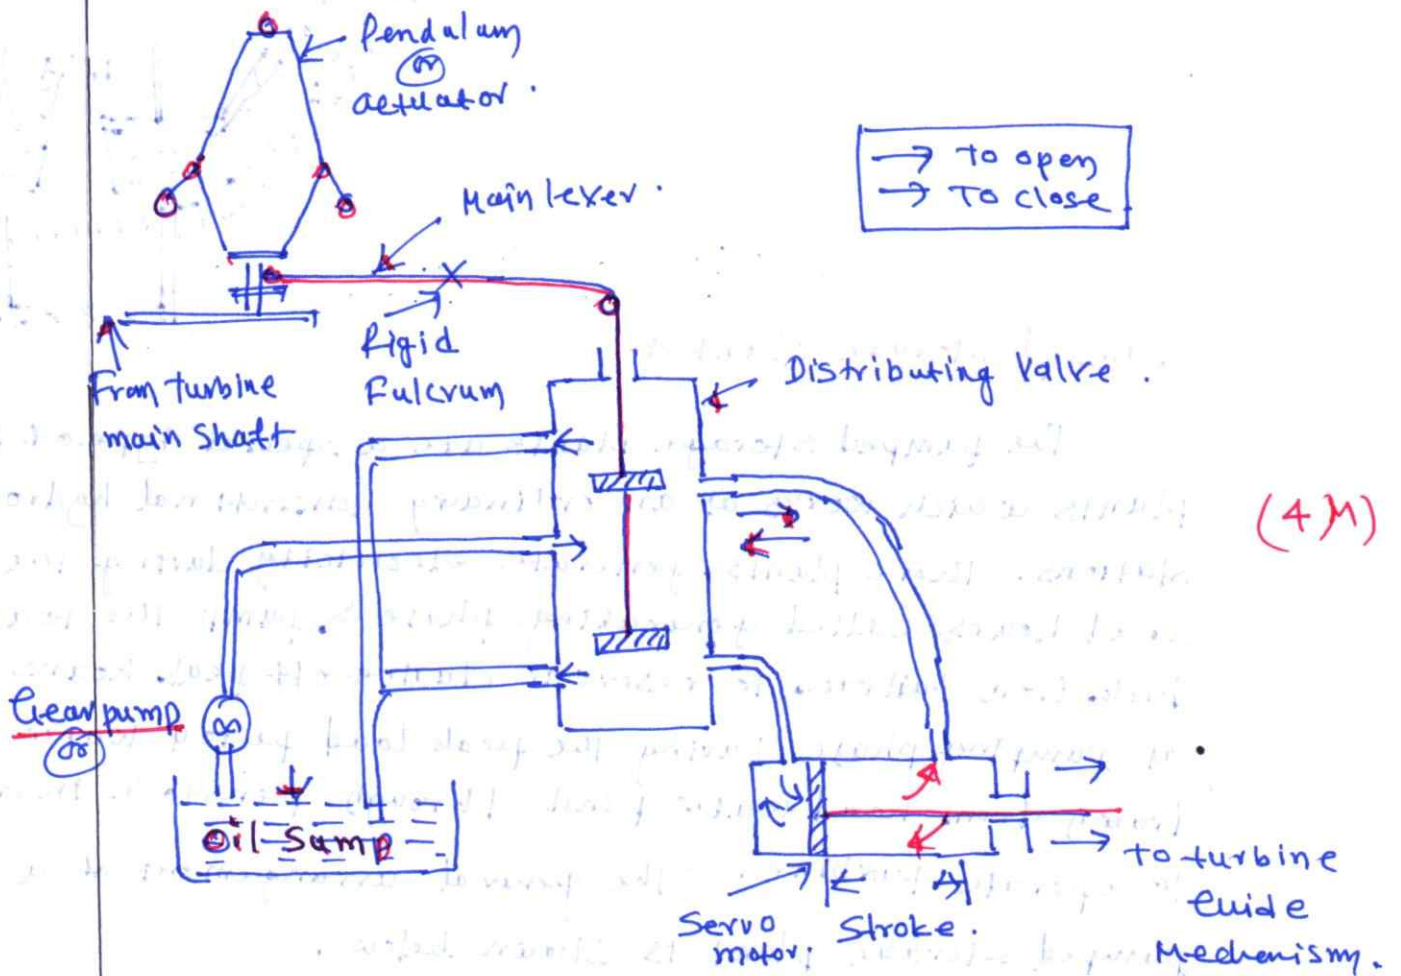 Pendulum
or
actuator.
→ To open
→ To close
Main lever.
Rigid
Fulcrum
From turbine
main shaft
Distributing Valve.
(4M)
Gear pump
or
Oil Sump
Servo
motor.
Stroke.
To turbine
Guide
Mechanism.